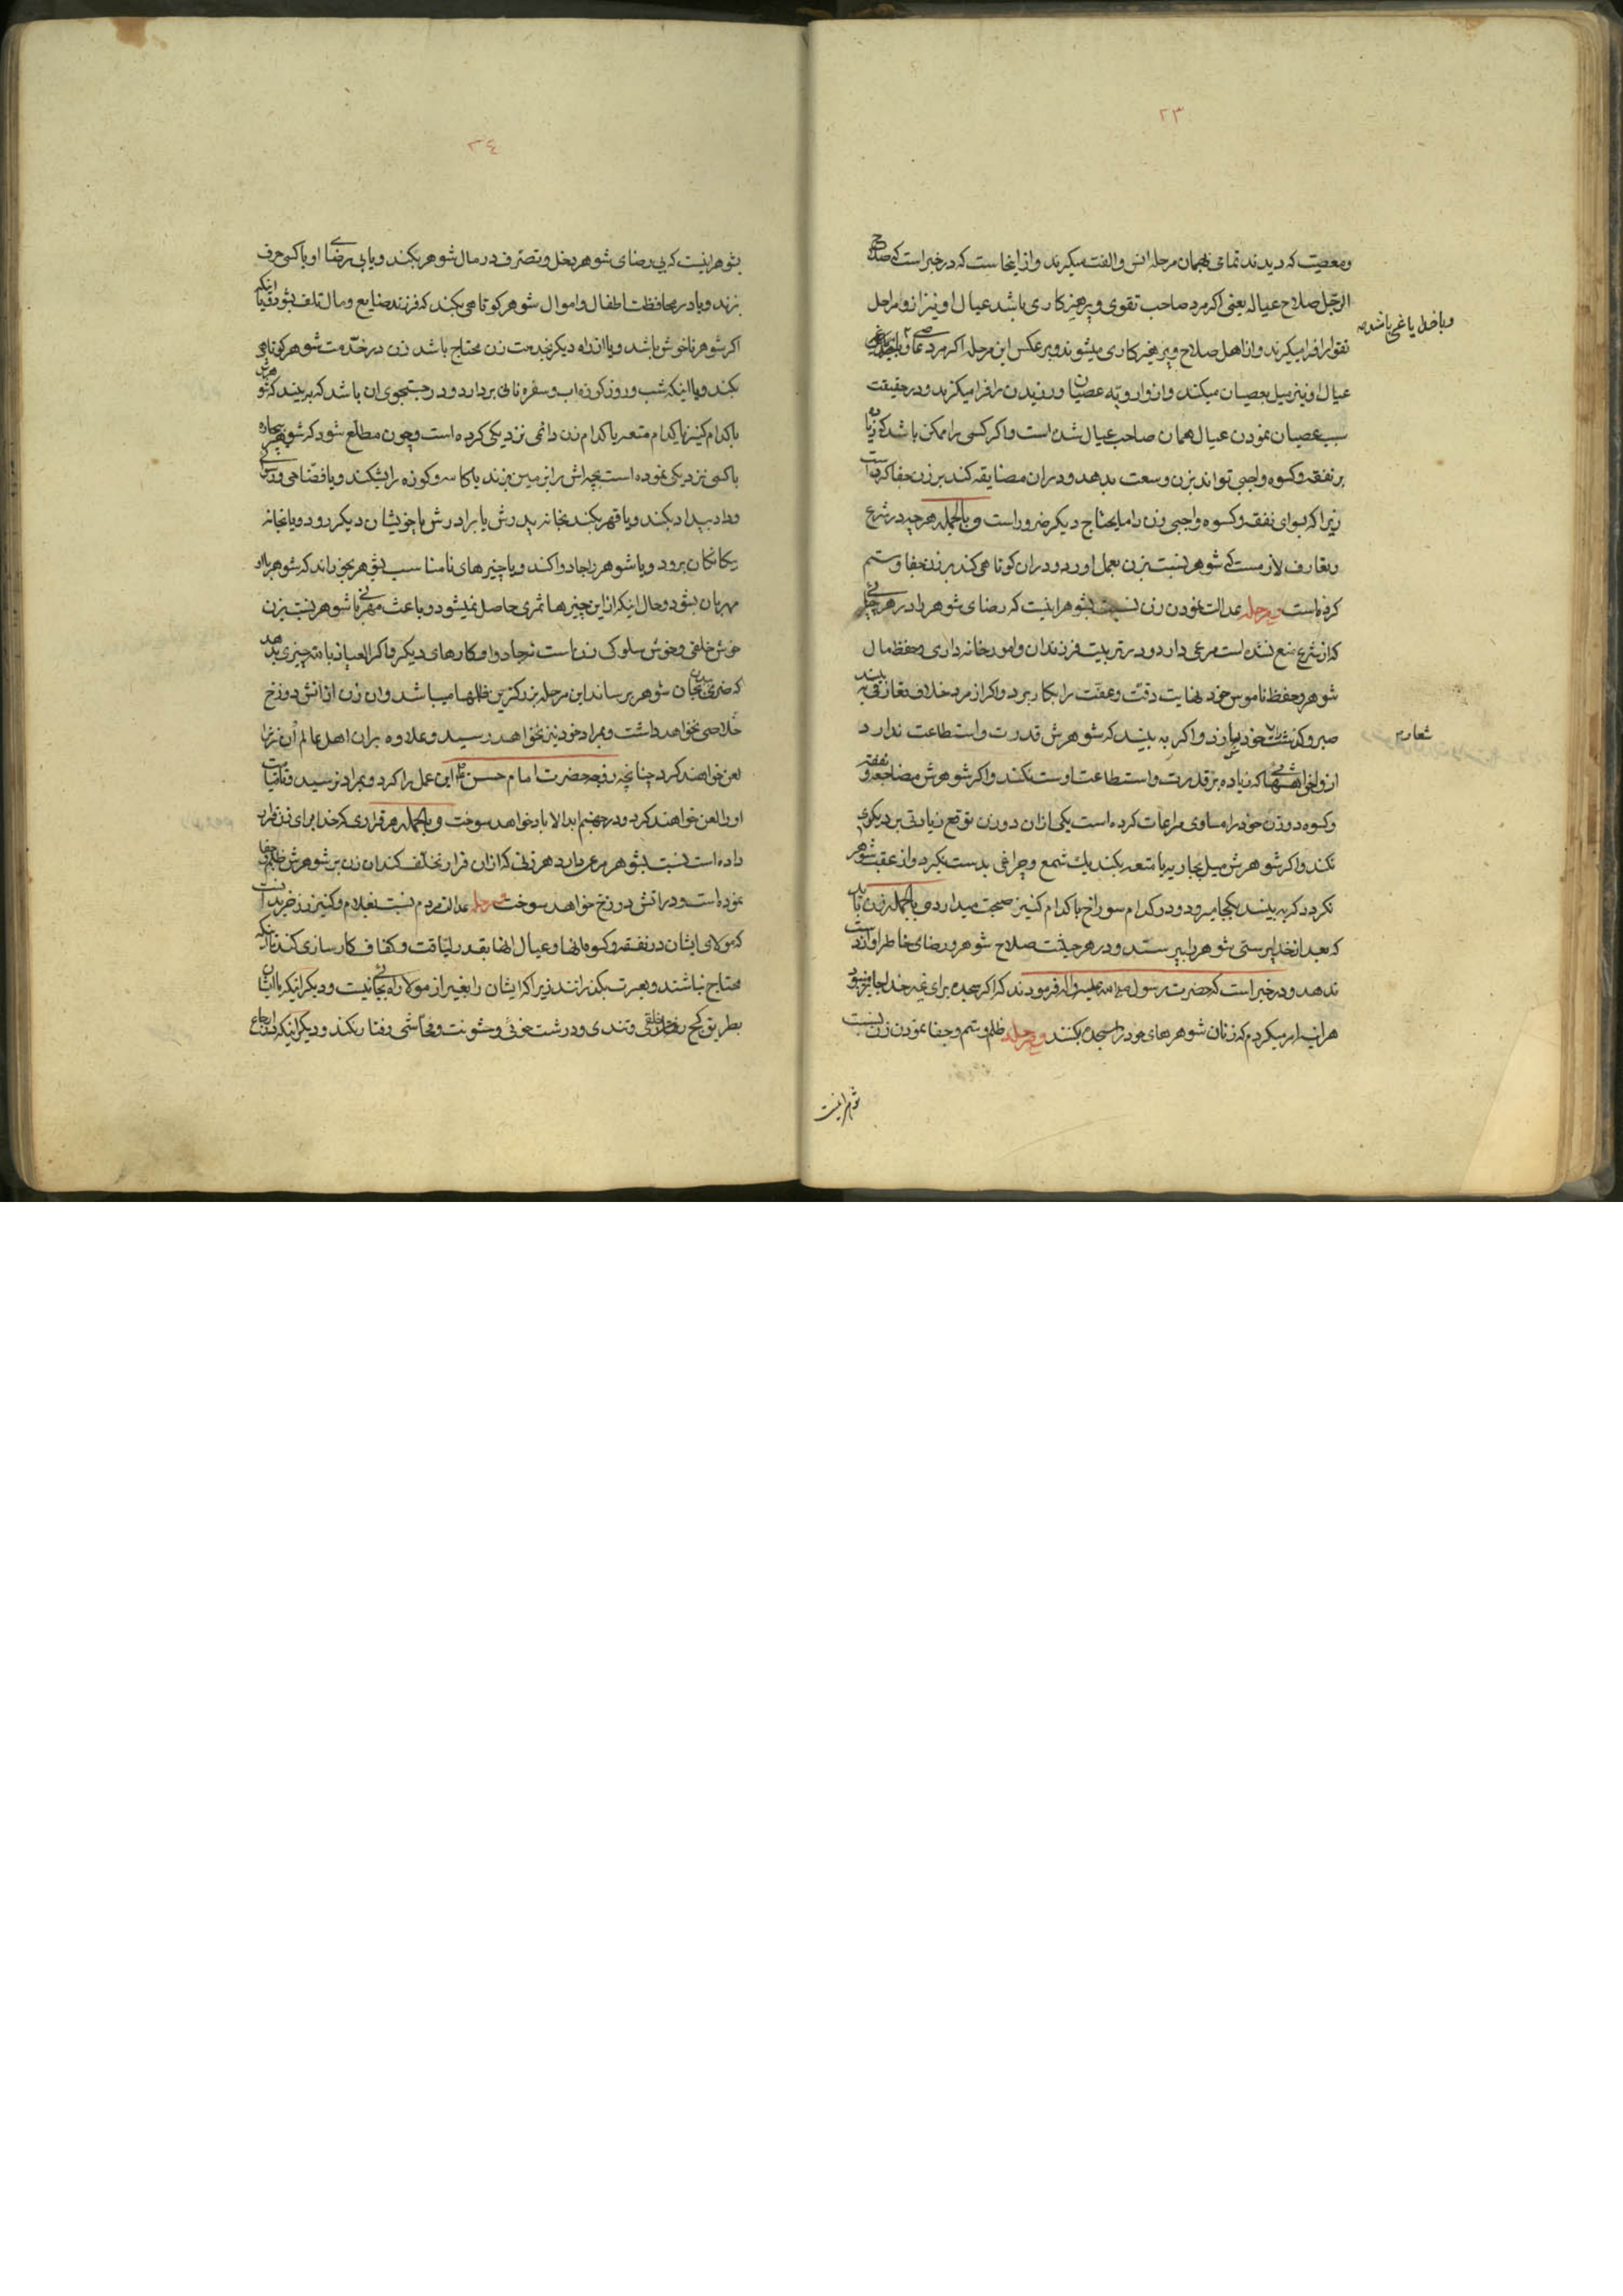 ۲۳
ومعصیت که دیدند تمامی بهمان مرحله انس والفت میکیرند واز اینجاست که در خبر است که صلاح
الرجل صلاح عیاله یعنی اکر مرد صاحب تقوی وپرهیزکاری باشد عیال او نیز از و مراحل
تقوارا فرا میکیرند واز اهل صلاح وپرهیزکاری میشوند وبرعکس این مرحله اکر مرد
ویا خدا یاغی باشد
عیال او نیز میل بعصیان میکند واز او رویّه عصیان ورزیدن را فرا میکیرند ودر حقیقت
سبب عصیان نمودن عیال همان صاحب عیال شده است واکر کسی را ممکن باشد که زیاده
بر نفقه وکسوه واجبی تواند بزن وسعت بدهد ودر ان مضایقه کند بر زن جفا کرده است
زیرا که بسوای نفقه وکسوه واجبی زن را مایحتاج دیکر ضرور است وبالجمله هر چه در شرع
وتعارف لازمست که شوهر نسبت بزن بعمل اورد ودر ان کوتاهی کند بر زن جفا وستم
کرده است ومرحله عدالت نمودن زن نسبت بشوهر اینست که رضای شوهر را در هر
که از شرع منع نشده است مرعی دارد ودر تربیت فرزندان وامور خانه داری وحفظ مال
شوهر وحفظ ناموس خود نهایت دقت وعفّت را بکار برد واکر از مرد خلاف تعارفی به بیند
صبر وکذشت را شعار خود سازد واکر به بیند که شوهرش قدرت واستطاعت ندارد
شعار
از او خواهشهائی که زیاده بر قدرت واستطاعت اوست نکند واکر شوهرش مضاجعه ونفقه
وکسوه دو زن خود را مساوی مراعات کرده است یکی از ان دو زن توقع زیادتی بر دیکری
نکند واکر شوهرش میل بجاریه یا متعه بکند یك شمع وچراغی بدست نکیرد واز عقب شوهر
نکردد که به بیند بکجا میرود ودر کدام سوراخ با کدام کنیز صحبت میدارد وبالجمله زن باید
که بعد از خدا پرستی شوهر را بپرستد ودر هر حیثیت صلاح شوهر ورضای خاطر او را از دست
ندهد ودر خبر است که حضرت رسول صلی الله علیه واله فرمودند که اکر سجده برای غیر خدا جایز میبود
هراینه امر میکردم که زنان شوهرهای خود را سجده بکنند ومرحله ظلم وستم وجفا نمودن زن نسبت
شوهر اینست
۲٤
بشوهر اینست که بی رضای شوهر بخل وتصرّف در مال شوهر بکند ویا بی رضای او با کسی حرف
بزند ویا در محافظت اطفال واموال شوهر کوتاهی بکند که فرزند ضایع ومال تلف بشود ویا اینکه
اکر شوهر ناخوش باشد ویا از راه دیکر بخدمت زن محتاج باشد زن در خدمت شوهر کوتاهی
بکند ویا اینکه شب وروز کوزه اب وسفره نانی بردارد ودر جستجوی ان باشد که به بیند که شوهرش
با کدام کنیز یا کدام متعه یا کدام زن دائمی نزدیکی کرده است وچون مطلع شود که شوهر بیچاره
با کسی نزدیکی نموده است بچه اش را بزمین بزند یا کاسه وکوزه را بشکند ویا فضّاحی ورسوائی
وداد بیداد بکند ویا قهر بکند بخانه پدرش یا برادرش یا خویشان دیکر رود ویا بخانه
بیکانکان برود ویا شوهر را جادو کند ویا چیزهای نامناسب بشوهر بخوراند که شوهر با او
مهربان بشود وحال اینکه از این چیزها ثمری حاصل نمیشود وباعث مهربانی شوهر نسبت بزن
خوش خلقی وخوش سلوکی زن است نه جادو وکارهای دیکر واکر العیاذ بالله چیزی بدهد
که ضرری ببدن وجان شوهر برساند این مرحله بزرکترین ظلمها میباشد وان زن از اتش دوزخ
خلاصی نخواهد داشت وبمراد خود نیز نخواهد رسید وعلاوه بر ان اهل عالم ان زن را
لعن خواهند کرد چنانچه زوجه حضرت امام حسن این عمل را کرد وبمراد نرسید وتا قیامت
او را لعن خواهند کرد ودر جهنم ابد الاباد خواهد سوخت وبالجمله هر قراری که خدا برای زن قرار
داده است نسبت بشوهر مرعی دارد هر زنی که از ان قرار تخلف کند ان زن بر شوهرش ظلم وجفا
نموده است ودر اتش دوزخ خواهد سوخت ومرحله عدالت مردم نسبت بغلام وکنیز زرخرید انست
که مولای ایشان در نفقه وکسوه انها وعیال انها بقدر لیاقت وکفاف کارسازی کند تا انکه
محتاج نباشند وبعسرت نکذرانند زیرا که ایشان را بغیر از مولا راه بجائی نیست ودیکر اینکه با ایشان
بطریق کج خلقی وتندی ودرشت خوئی وخشونت وفحاشی رفتار نکند ودیکر اینکه